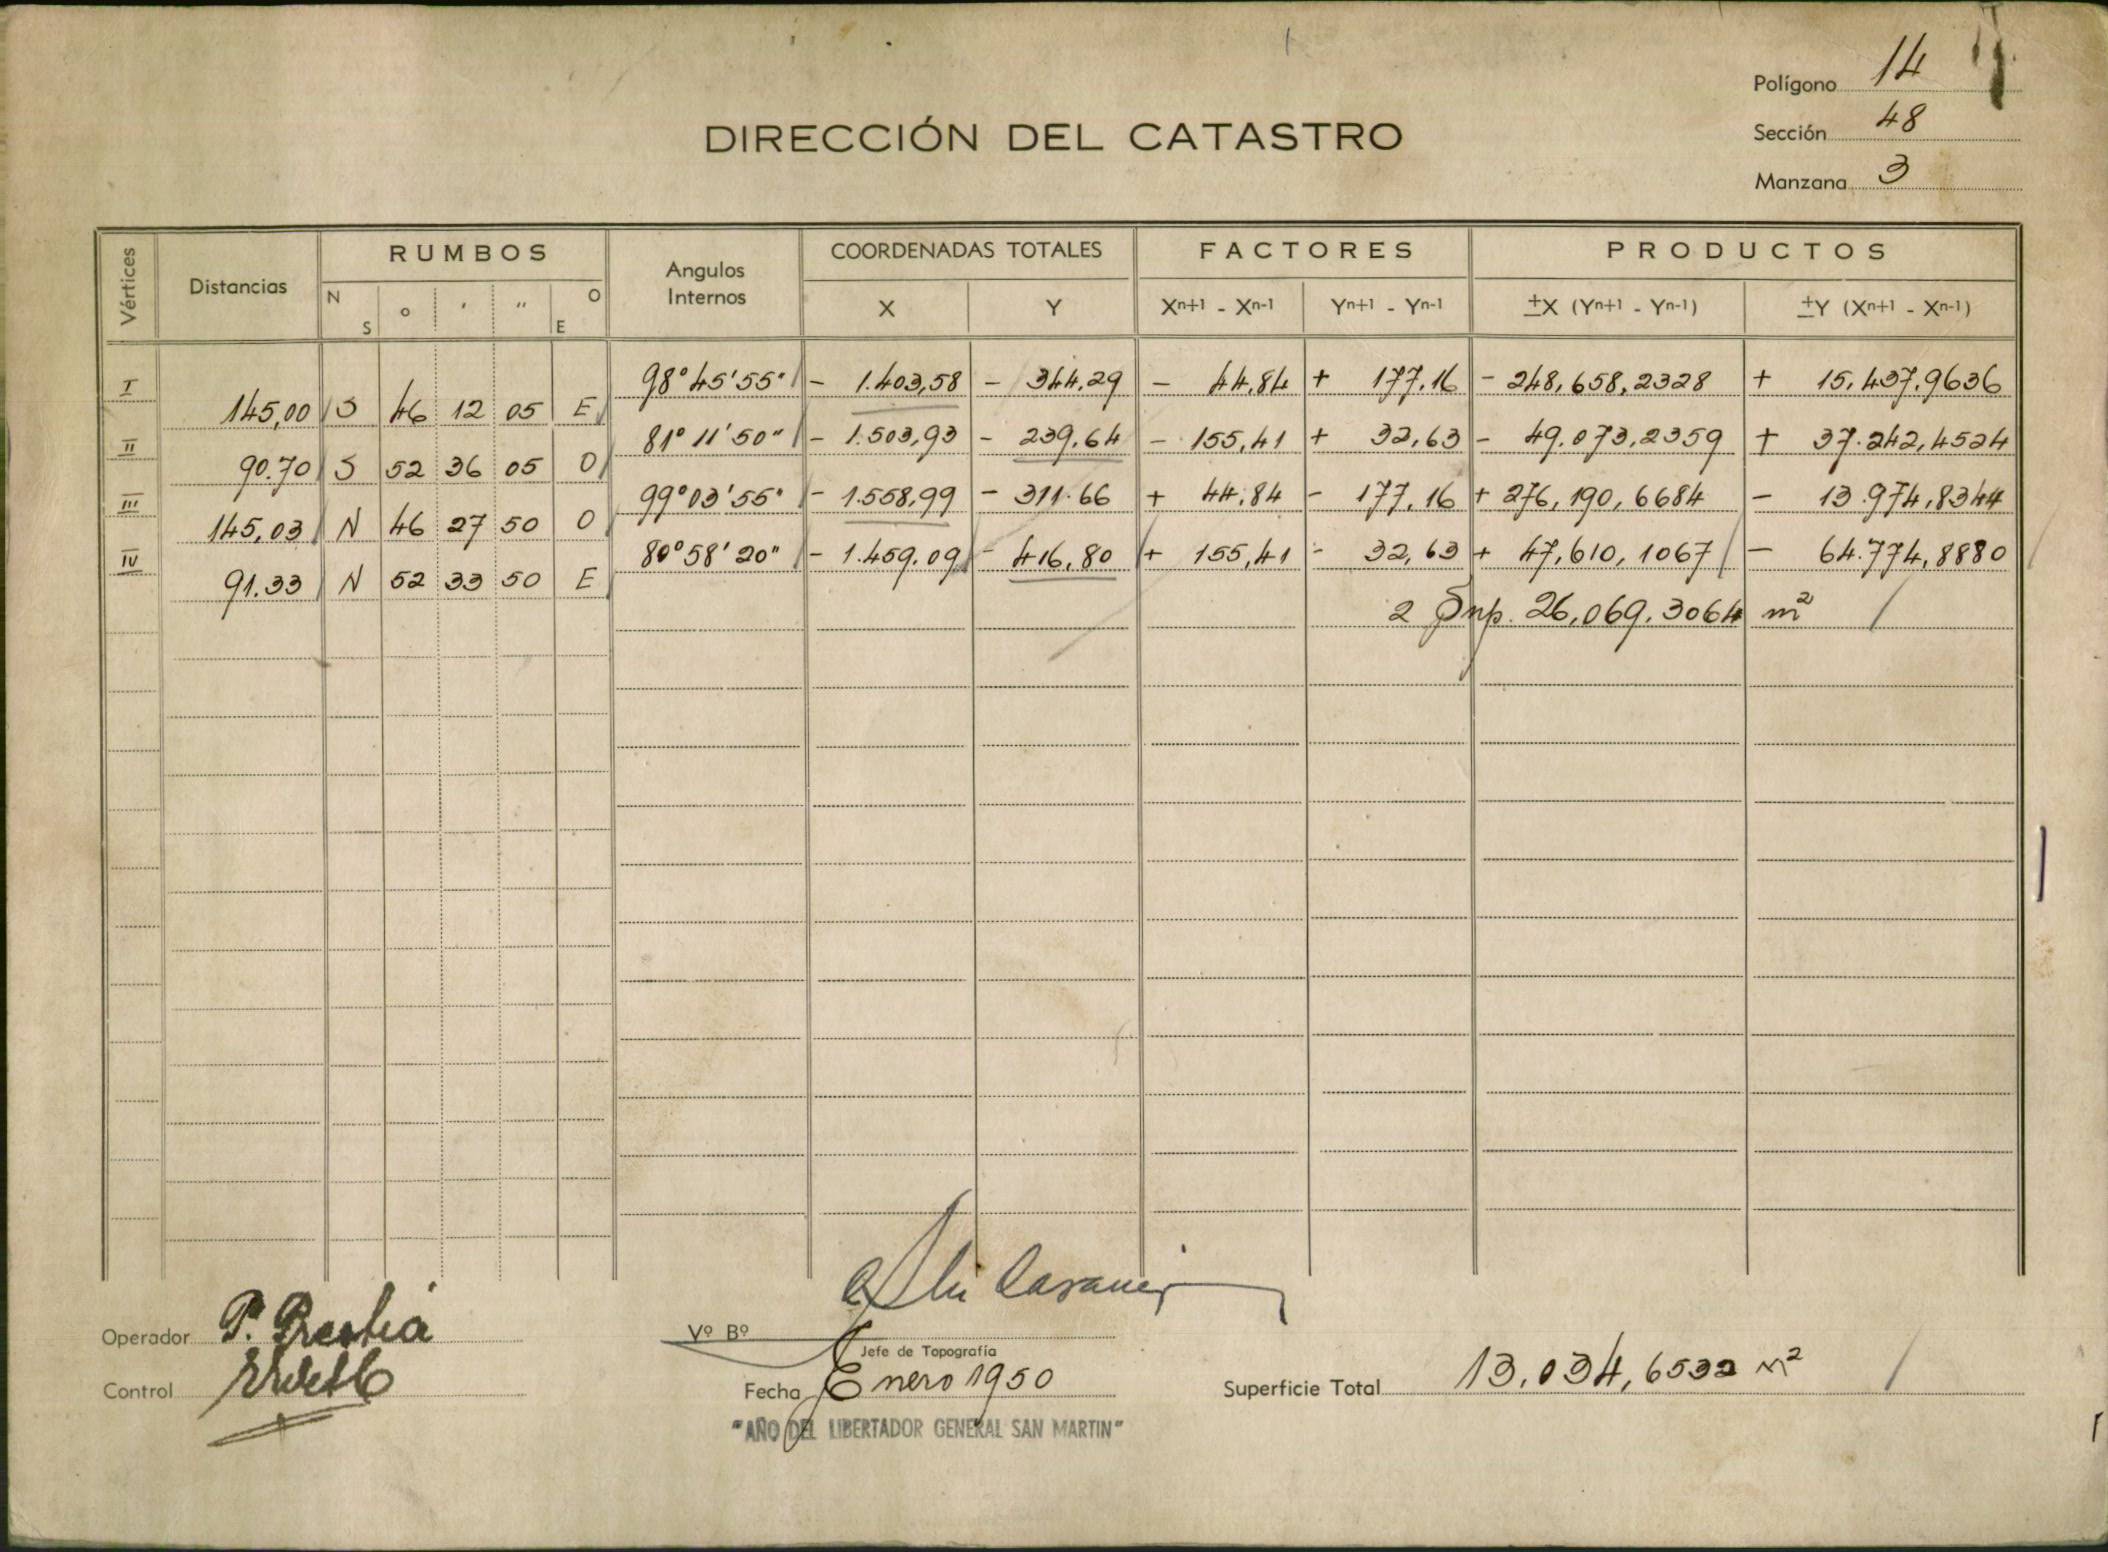 Polígono 14
Sección 48
Manzana 3
DIRECCIÓN DEL CATASTRO
Vértices Distancias RUMBOS Angulos Internos COORDENADAS TOTALES FACTORES PRODUCTOS
N S o ' " O E X Y Xn+1 - Xn-1 Yn+1 - Yn-1 ±X (Yn+1 - Yn-1) ±Y (Xn+1 - Xn-1)
I 98°45'55" - 1.403,58 - 344,29 - 44,84 + 177,16 - 248,658,2328 + 15,437,9636
145,00 S 46 12 05 E
II 81° 11' 50" - 1.503,93 - 239,64 - 155,41 + 32,63 - 49.073,2359 + 37.242,4524
90.70 S 52 36 05 O
III 99°03'55" - 1.558,99 - 311.66 + 44,84 - 177,16 + 276,190,6684 - 13.974,8344
145,03 N 46 27 50 O
IV 80°58'20" - 1.459,09 - 416,80 + 155,41 - 32,63 + 47,610,1067 - 64.774,8880
91.33 N 52 33 50 E
2 Sup. 26,069.3064 m²
Operador P. Prestia
Control
Vº Bº
Jefe de Topografía
Fecha Enero 1950
Superficie Total 13,034,6532 m²
"AÑO DEL LIBERTADOR GENERAL SAN MARTIN"